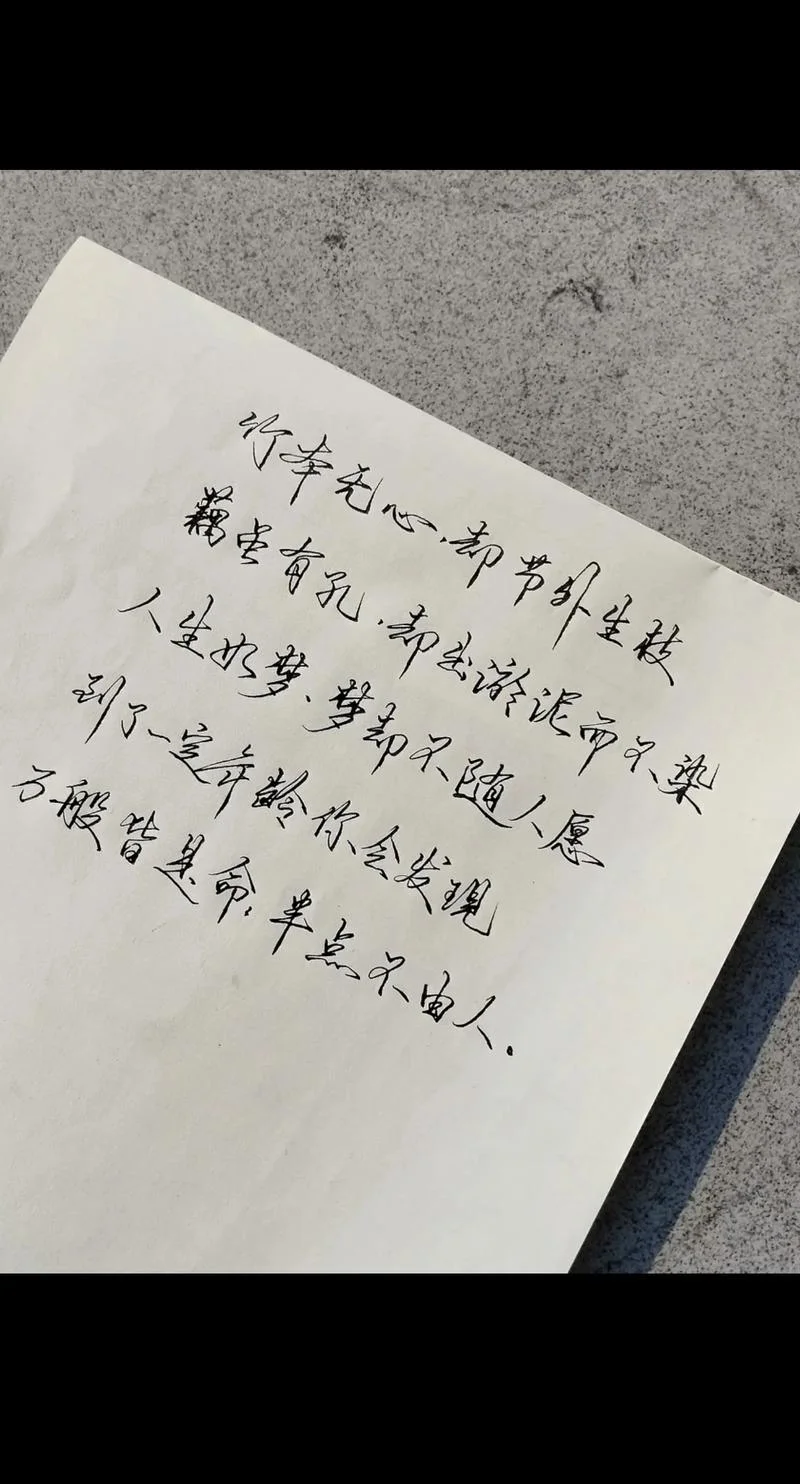 竹本无心,却节外生枝
藕虽有孔,却出淤泥而不染
人生如梦、梦却不随人愿
到了一定年龄你会发现
万般皆是命,半点不由人.